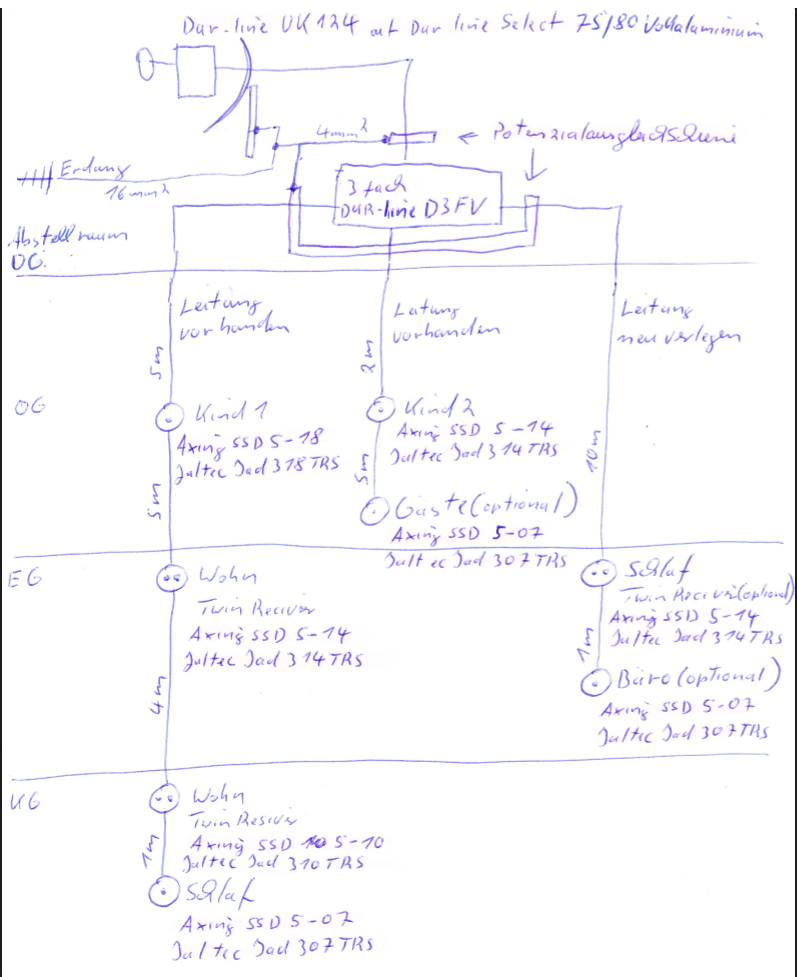 Dur-line UK 124 auf Dur line Select 75/80 Vollaluminium
4mm²
← Potenzialausgleichschiene
Erdung
16mm²
3 fach
DUR-line D3FV
Abstellraum
OG.
Leitung
vorhanden
Leitung
vorhanden
Leitung
neu verlegen
5m
2m
10m
OG
Kind 1
Axing SSD 5-18
Jultec Jad 318 TRS
Kind 2
Axing SSD 5-14
Jultec Jad 314 TRS
5m
5m
Gäste (optional)
Axing SSD 5-07
Jultec Jad 307 TRS
EG
Wohn
Twin Reciver
Axing SSD 5-14
Jultec Jad 314 TRS
Schlaf
Twin Reciver (optional)
Axing SSD 5-14
Jultec Jad 314 TRS
1m
Büro (optional)
Axing SSD 5-07
Jultec Jad 307 TRS
4m
KG
Wohn
Twin Resiver
Axing SSD 5-10
Jultec Jad 310 TRS
1m
Schlaf
Axing SSD 5-07
Jultec Jad 307 TRS